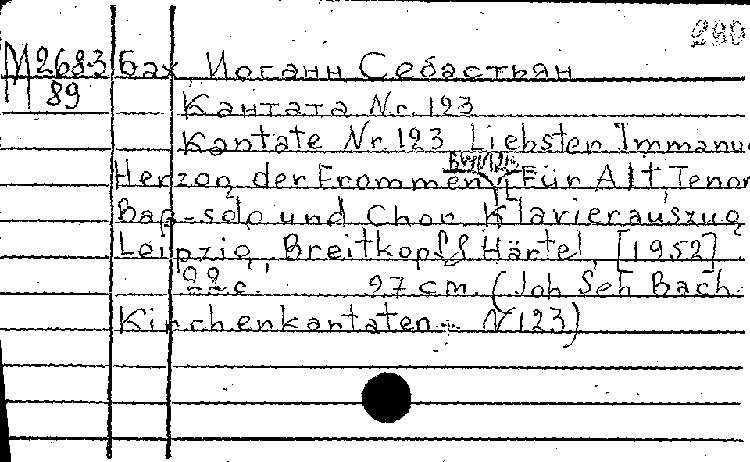 290
М2683 Бах Иоганн Себастьян
89 Кантата Nr. 123
Kantate Nr. 123 Liebster Immanu
Herzog der Frommen Für Alt, Tenor
Bap-solo und Chor Klavierauszug
Leipzig, Breitkopf & Härtel, [1952]
22 c. 27 cm. (Joh Seb Bach
Kirchenkantaten N 123)